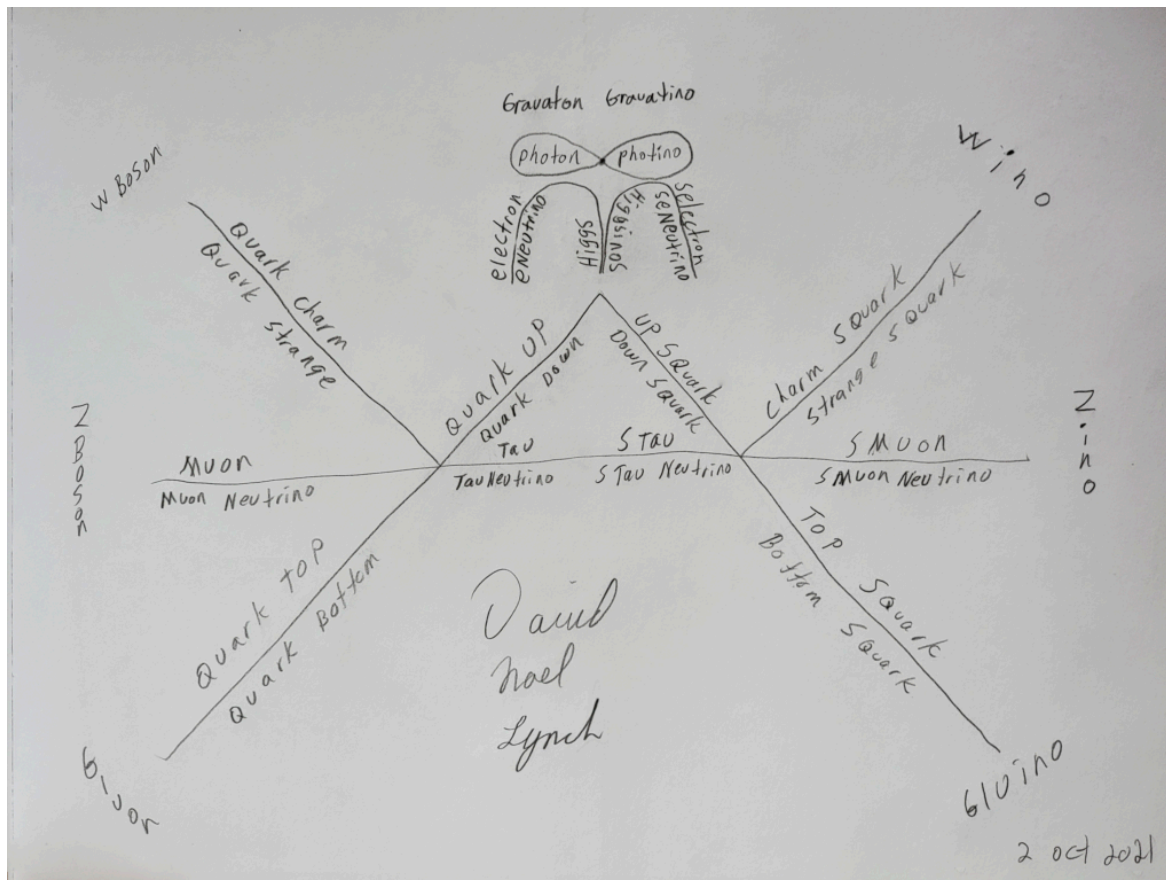 Gravaton Gravatino
photon photino
electron
eNeutrino
Higgs
Higgsinos
selectron
seNeutrino
W Boson
Wino
Quark Charm
Quark Strange
Quark UP
Quark Down
UP Squark
Down Squark
Charm Squark
Strange Squark
Z Boson
Zino
Muon
Muon Neutrino
Tau
Tau Neutrino
S Tau
S Tau Neutrino
S Muon
S Muon Neutrino
Quark Top
Quark Bottom
Top Squark
Bottom Squark
David
Noel
Lynch
Gluon
Gluino
2 Oct 2021